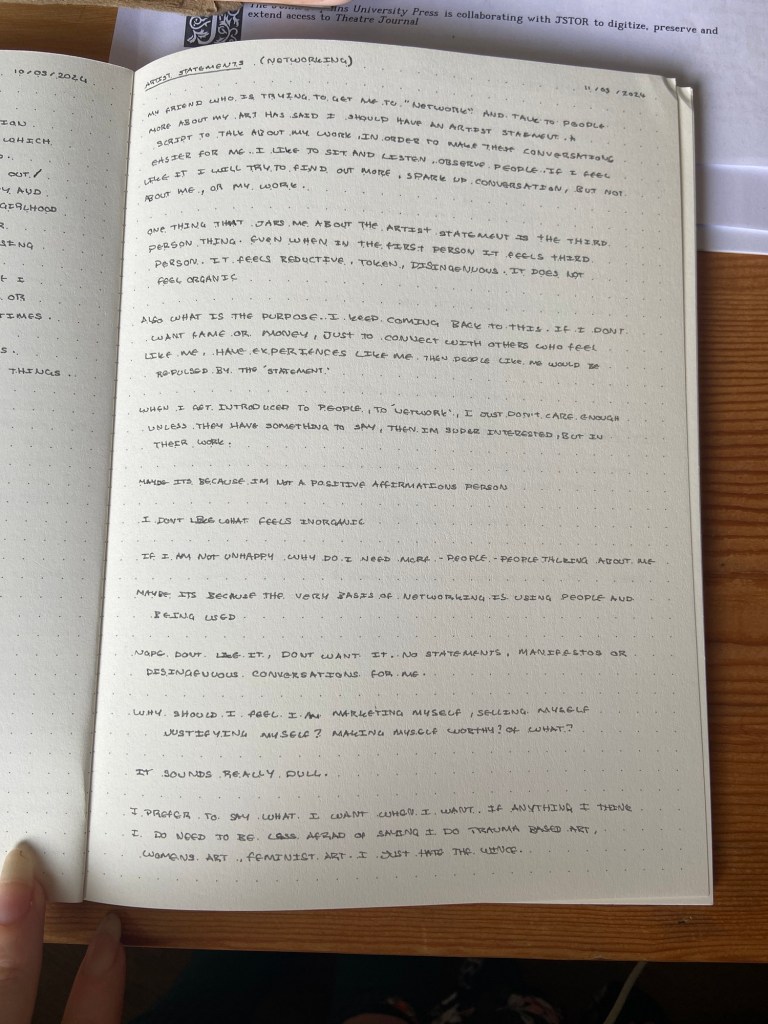 The Johns Hopkins University Press is collaborating with JSTOR to digitize, preserve and
extend access to Theatre Journal
10/03/2024
ION.
WHICH
OUT!
Y AND
GIRLHOOD
R.
SING
E I
OR
TIMES.
S.
THINGS.
ARTIST STATEMENTS. (NETWORKING)
11/03/2024
MY FRIEND WHO IS TRYING TO GET ME TO "NETWORK" AND TALK TO PEOPLE
MORE ABOUT MY ART HAS SAID I SHOULD HAVE AN ARTIST STAEMENT. A
SCRIPT TO TALK ABOUT MY WORK, IN ORDER TO MAKE THESE CONVERSATIONS
EASIER FOR ME. I LIKE TO SIT AND LISTEN, OBSERVE PEOPLE. IF I FEEL
LIKE IT I WILL TRY TO FIND OUT MORE, SPARK UP CONVERSATION, BUT NOT
ABOUT ME, OR MY WORK.
ONE THING THAT JARS ME ABOUT THE ARTIST STATEMENT IS THE THIRD
PERSON THING. EVEN WHEN IN THE FIRST PERSON IT FEELS THIRD
PERSON. IT FEELS REDUCTIVE, TOKEN, DISINGENUOUS. IT DOES NOT
FEEL ORGANIC
ALSO WHAT IS THE PURPOSE. I KEEP COMING BACK TO THIS. IF I DONT
WANT FAME OR MONEY, JUST TO CONNECT WITH OTHERS WHO FEEL
LIKE ME, HAVE EXPERIENCES LIKE ME. THEN PEOPLE LIKE ME WOULD BE
REPULSED BY THE "STATEMENT."
WHEN I GET INTRODUCED TO PEOPLE, TO "NETWORK", I JUST DON'T CARE ENOUGH
UNLESS THEY HAVE SOMETHING TO SAY, THEN IM SUPER INTERESTED, BUT IN
THEIR WORK.
MAYBE ITS BECAUSE IM NOT A POSITIVE AFFIRMATIONS PERSON
I DONT LIKE WHAT FEELS INORGANIC
IF I AM NOT UNHAPPY WHY DO I NEED MORE - PEOPLE - PEOPLE TALKING ABOUT ME
MAYBE ITS BECAUSE THE VERY BASIS OF NETWORKING IS USING PEOPLE AND
BEING USED
NOPE. DONT LIKE IT, DONT WANT IT. NO STATEMENTS, MANIFESTOS OR
DISINGENUOUS CONVERSATIONS FOR ME.
WHY SHOULD I FEEL I AM MARKETING MYSELF, SELLING MYSELF
JUSTIFYING MYSELF? MAKING MYSELF WORTHY? OF WHAT?
IT SOUNDS REALLY DULL.
I PREFER TO SAY WHAT I WANT WHEN I WANT. IF ANYTHING I THINK
I DO NEED TO BE LESS AFRAID OF SAYING I DO TRAUMA BASED ART,
WOMENS ART, FEMINIST ART. I JUST HATE THE WINCE.